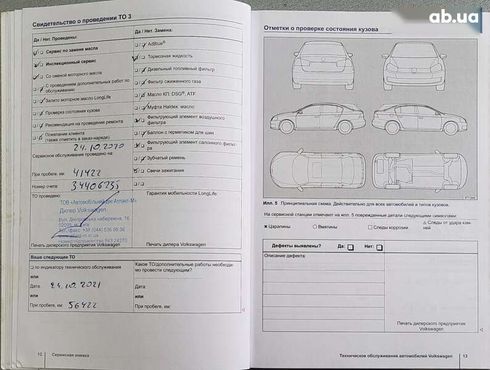 ab.ua
Свидетельство о проведении ТО 3
Да / Нет. Проведены:
Сервис по замене масла
Инспекционный сервис
Со сменой моторного масла
С проведением дополнительных работ по обслуживанию
Залито моторное масло LongLife
Проверка состояния кузова
Рекомендация на проведение ремонта
Пожелание клиента
(также отметить в заказ-наряде)
Сервисное обслуживание проведено на
24.10.2020
При пробеге, км: 41422
Номер счета
ТО проведено:
ТОВ
Дилер Volkswagen
Печать дилерского предприятия Volkswagen
Да / Нет. Замена:
AdBlue®
Тормозная жидкость
Дизельный топливный фильтр
Фильтр сжиженного газа
Масло КП, DSG®, ATF
Муфта Haldex, масло
Фильтрующий элемент воздушного фильтра
Баллон с герметиком для шин
Фильтрующий элемент салонного фильтра
Зубчатый ремень
Свечи зажигания
Гарантия мобильности LongLife
Печать дилера Volkswagen
Ваше следующее ТО
по индикатору технического обслуживания
или
Дата: 24.10.2021
или
При пробеге, км: 56422
Какое ТО/дополнительные работы необходимо провести следующим:
10 Сервисная книжка
Отметки о проверке состояния кузова
Илл. 5 Принципиальная схема. Действительно для всех автомобилей и типов кузовов.
На сервисной станции отмечают на илл. 5 поврежденные детали следующими символами:
Царапины
Вмятины
Следы коррозии
Следы от удара камней
Дефекты выявлены? Да: Нет:
Описание дефекта:
Печать дилерского предприятия
Volkswagen
Техническое обслуживание автомобилей Volkswagen 13